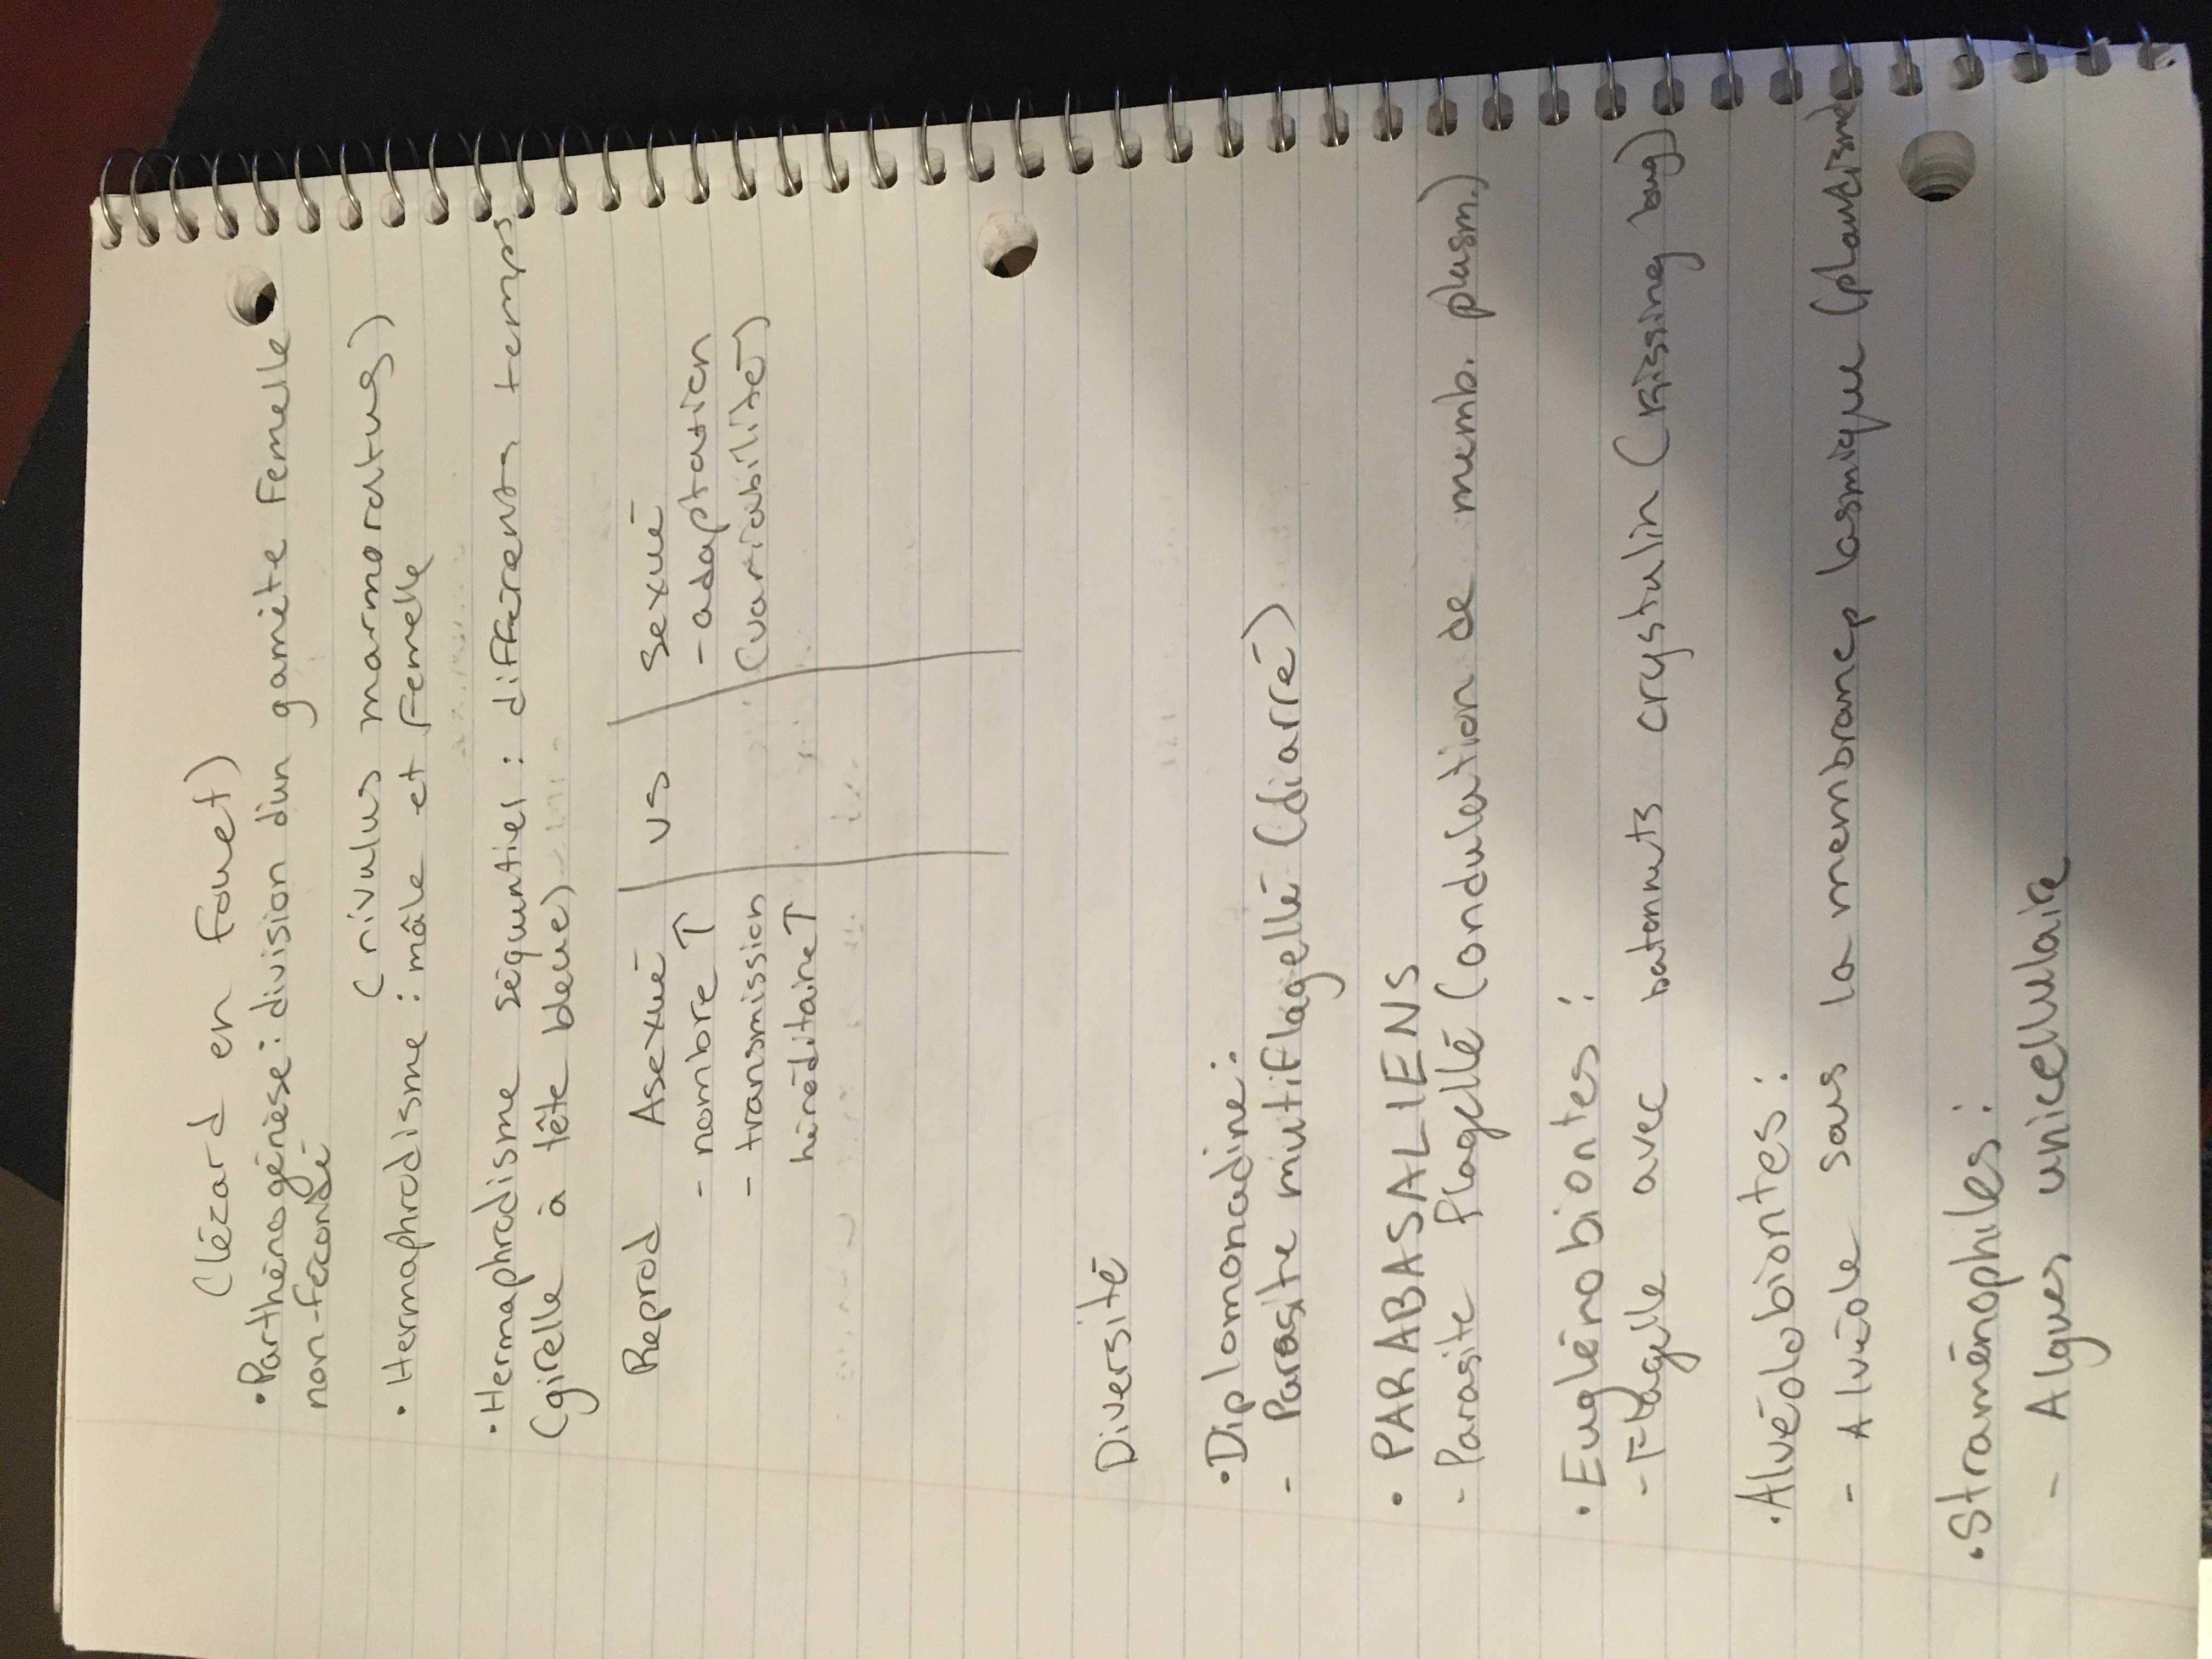 (lézard en fouet)
• Parthénogénèse : division d'un gamète femelle
non-fécondé
(rivulus marmoratus)
• Hermaphrodisme : mâle et femelle
• Hermaphrodisme séquentiel : différents temps
(girelle à tête bleue)
Reprod Asexué vs sexué
- nombre ↑ - adaptation
- transmission (variabilité)
héréditaire ↑
Diversité
• Diplomonadine :
- Parasite mutiflagellé (diarré)
• PARABASALIENS
- Parasite flagellé (ondulation de memb. plasm.)
• Euglénobiontes :
- Flagelle avec batonnets crystalin (kissing bug)
• Alvéolobiontes :
- Alvéole sous la membrane plasmique
• Straménophiles :
- Algues unicellulaire